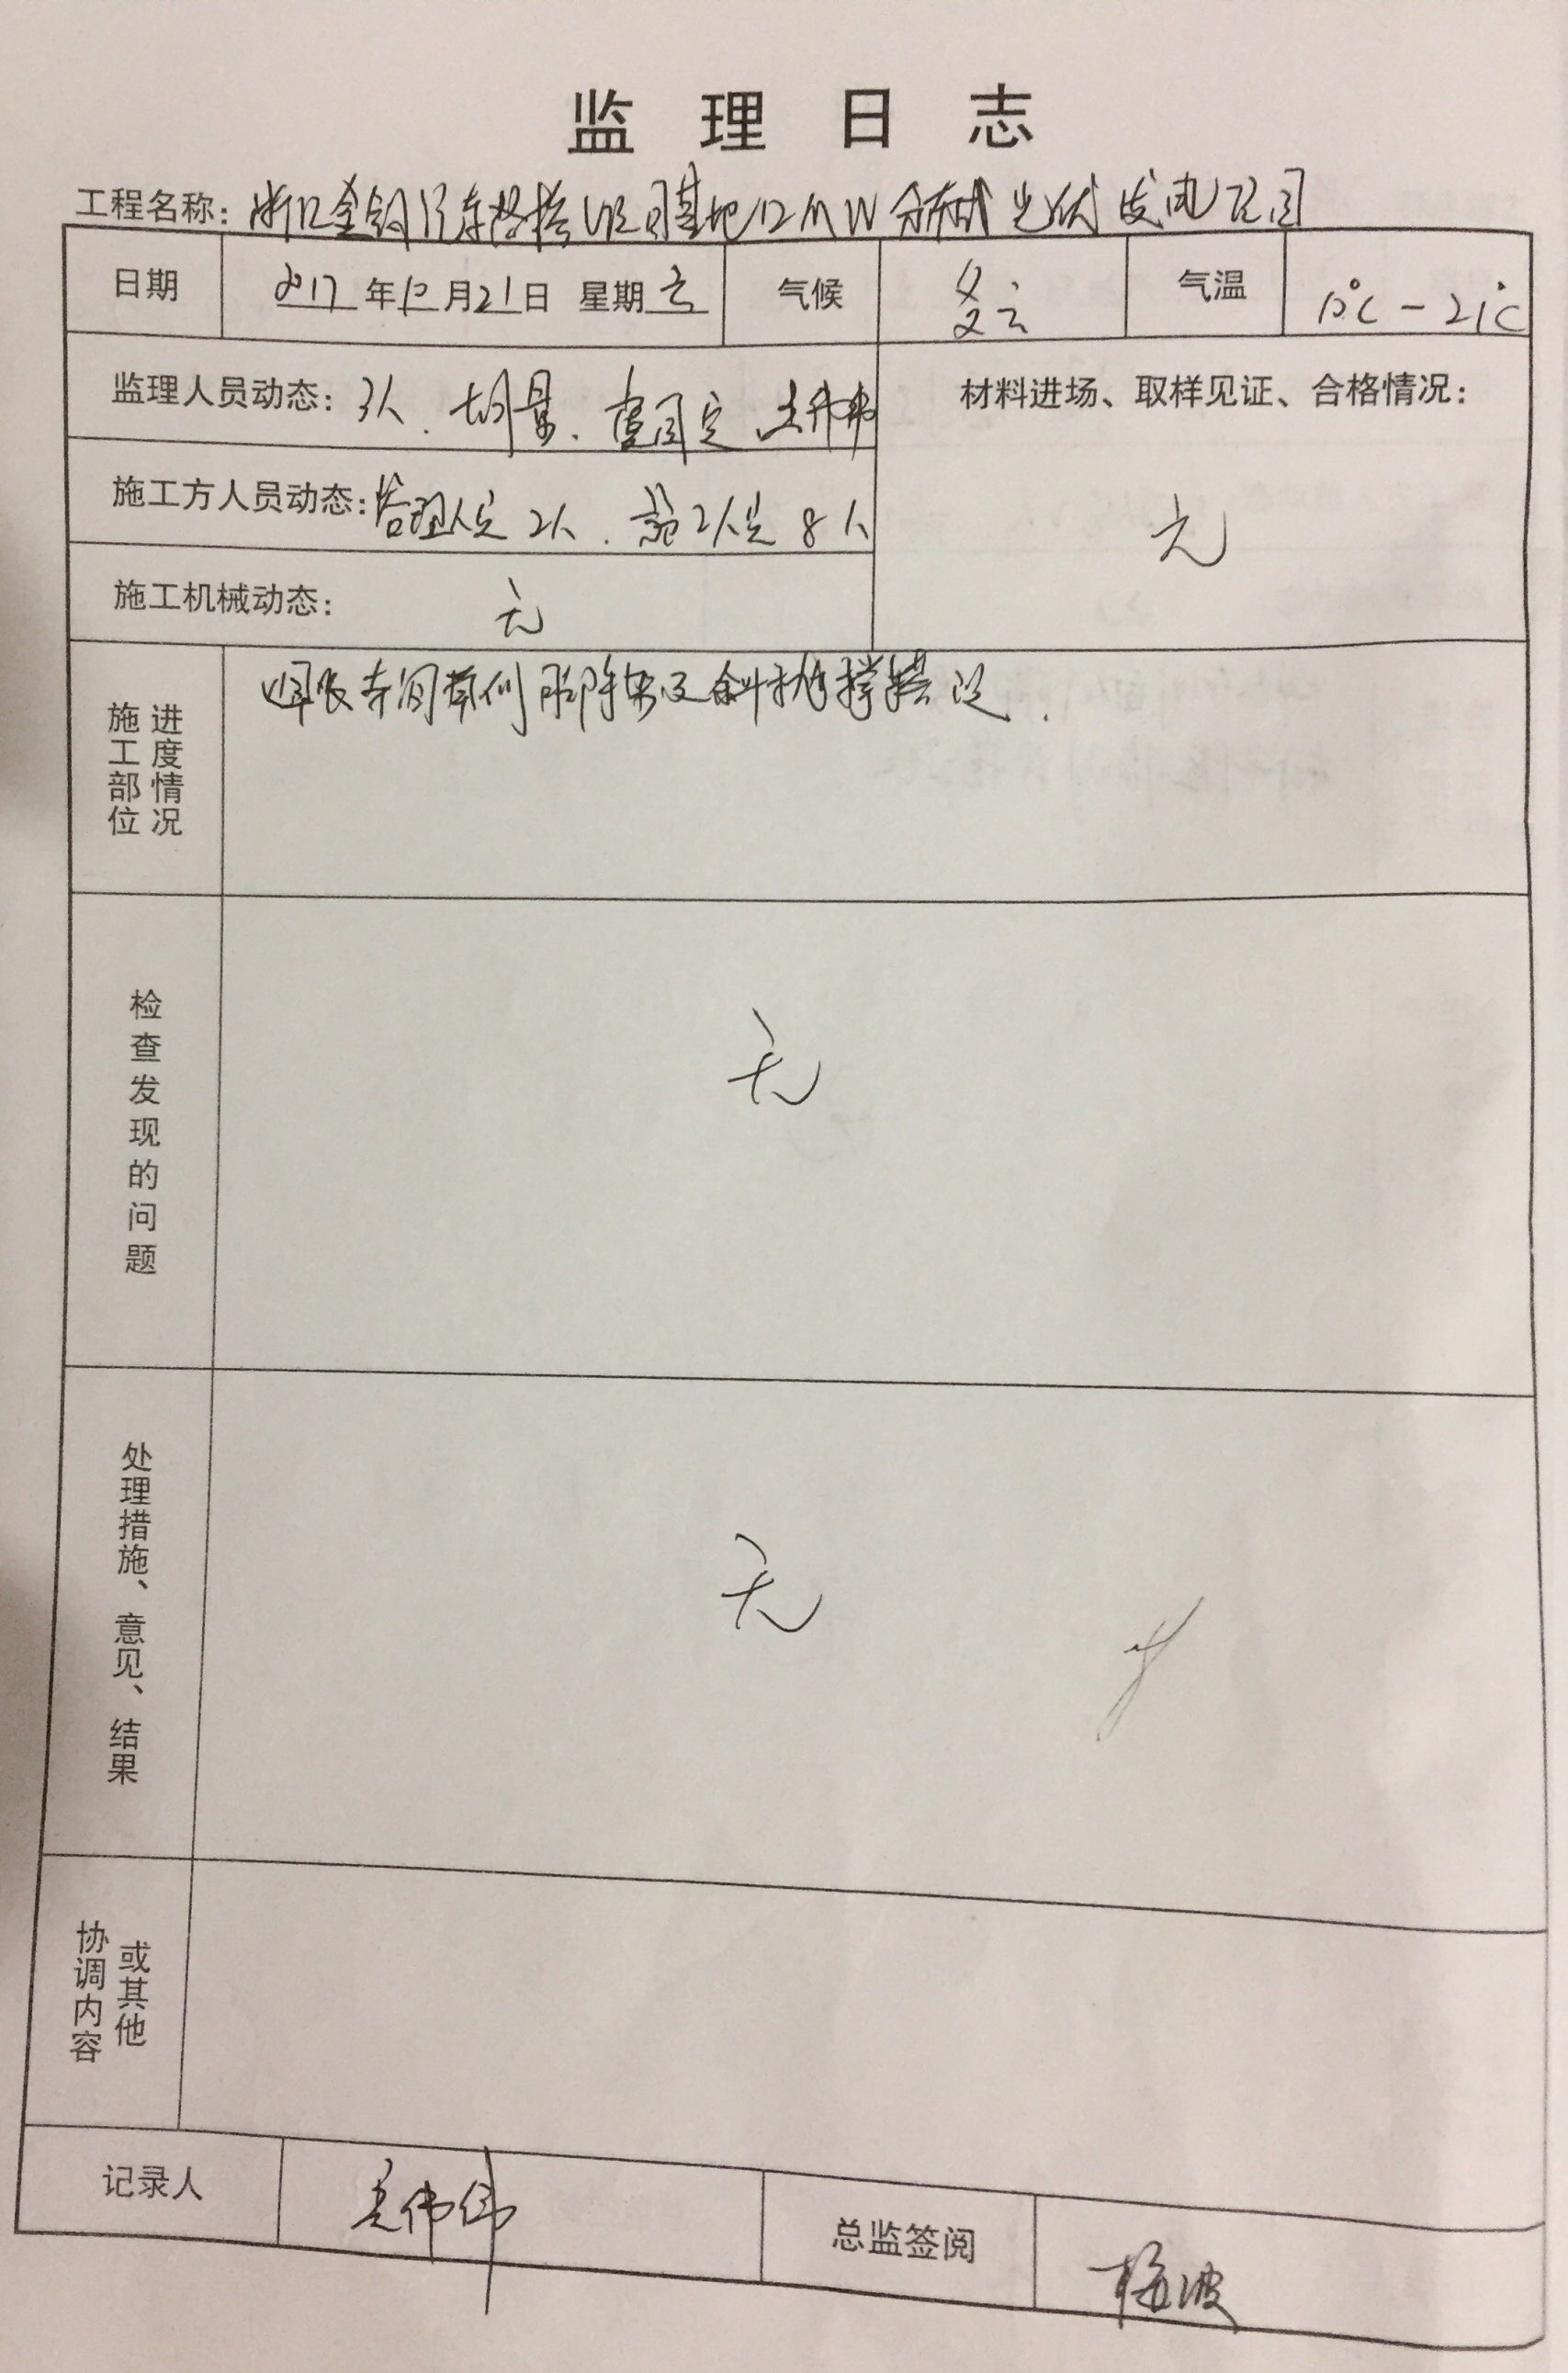 监理日志
工程名称: 浙江金钢汽车 基地12MW分布式光伏发电项目
日期 2017年12月21日 星期 气候 多云 气温 10℃-21℃
监理人员动态: 3人、胡景、
材料进场、取样见证、合格情况:
无
施工方人员动态: 管理人员2人、施工人员8人
施工机械动态: 无
施工部位
进度情况
脚手架及斜 撑搭设.
检查发现的问题
无
处理措施、意见、结果
无
协调内容
或其他
记录人 伟伟 总监签阅 杨波